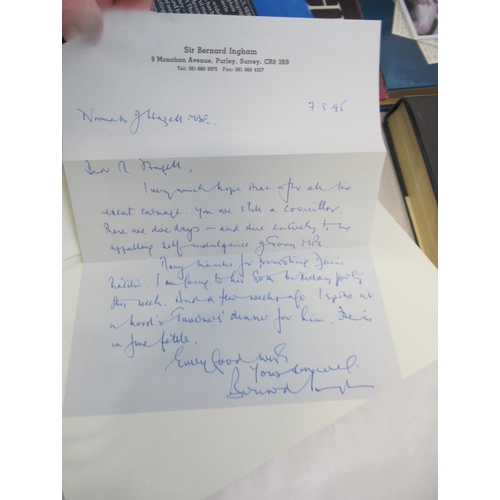 Sir Bernard Ingham
9 Monahan Avenue, Purley, Surrey, CR8 3BB
Tel: 081-660 8970 Fax: 081 668 4357
Norman J Hazell MBE.
7.5.95
Dear Mr Hazell,
I very much hope that after all the
recent carnage. You are still a councillor.
These are dire days - and due entirely to the
appalling self-indulgence of Tory MPs
Many thanks for promoting Denis
I am going to his 80th birthday party
this week. And a few weeks ago. I spoke at
a Lord's Taverners' dinner for him. He is
in fine fettle.
Every Good wish
Yours sincerely
Bernard Ingham